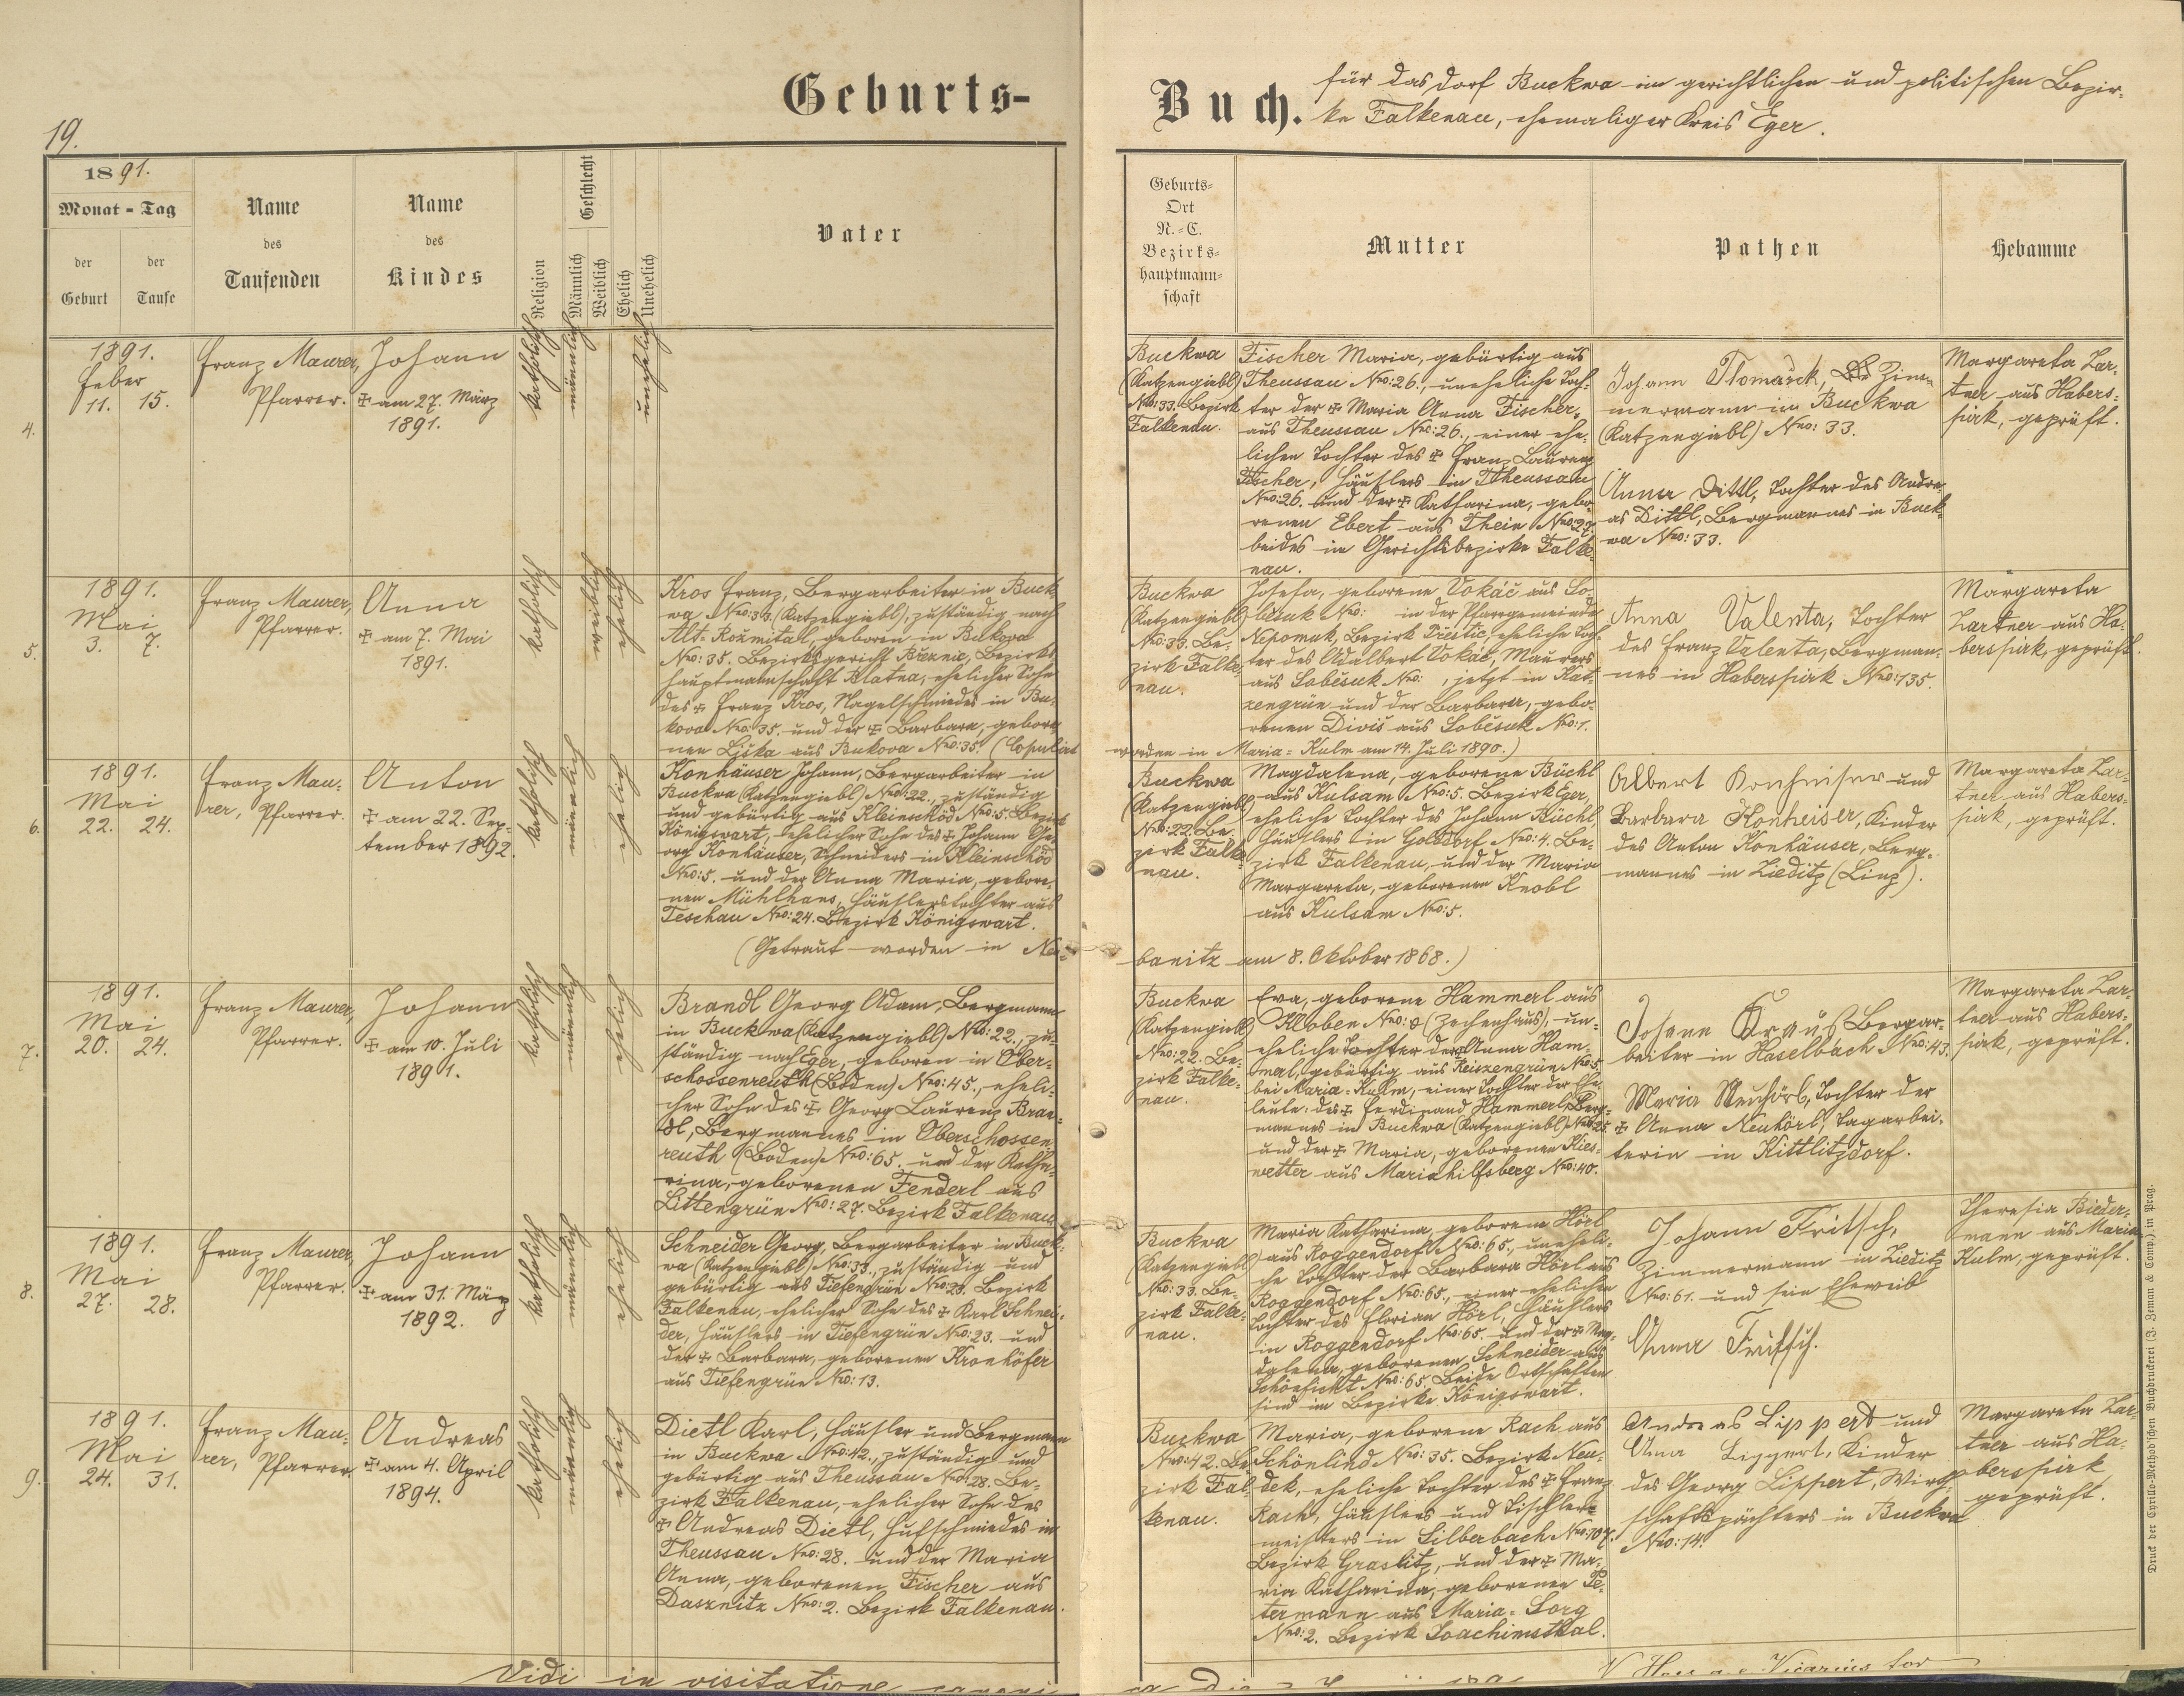 Geburts-
Buch.
für das Dorf Buckwa im gerichtlichen und politischen Bezir-
ke Falkenau, ehemaliger Kreis Eger.
19.
1891.
Monat - Tag
der Geburt
der Taufe
Name des Taufenden
Name des Kindes
Religion
Geschlecht
Männlich
Weiblich
Ehelich
Unehelich
Vater
Geburts-
Ort
N.-C.
Bezirks-
hauptmann-
schaft
Mutter
Pathen
Hebamme
4.
1891.
Feber
11. 15.
Franz Maurer,
Pfarrer.
Johann
✠ am 27. März
1891.
katholisch
männlich
unehelich
Buckwa
(Katzengiebl)
Nro: 33. Bezirk
Falkenau.
Fischer Maria, gebürtig aus
Theussau Nro: 26., uneheliche Toch-
ter der ✠ Maria Anna Fischer,
aus Theussau Nro: 26., einer ehe-
lichen Tochter des ✠ Franz Laurenz
Fischer, Häuslers in Theussau
Nro: 26. und der ✠ Katharina, gebo-
renen Ebert aus Thein Nro: 27.
beides im Gerichtsbezirke Falke-
nau.
Johann Zim-
mermann in Buckwa
(Katzengiebl) Nro: 33.
Anna Dittl, Tochter des Andre-
as Dittl, Bergmannes in Buck-
wa Nro: 33.
Margareta Zar-
tner aus Habers-
pirk, geprüft.
5.
1891.
Mai
3. 7.
Franz Maurer,
Pfarrer.
Anna
✠ am 7. Mai
1891.
katholisch
weiblich
ehelich
Kros Franz, Bergarbeiter in Buck-
wa Nro: 33. (Katzengiebl), zuständig nach
Alt-Rožmital, geboren in Bukova
Nro: 35. Bezirksgericht Březnic, Bezirks-
hauptmannschaft Blatna, ehelicher Sohn
des ✠ Franz Kros, Nagelschmiedes in Bu-
kova Nro: 35. und der ✠ Barbara, gebore-
nen Liška aus Bukova Nro: 35. (Copulirt
worden in Maria-Kulm am 14. Juli 1890.)
Buckwa
(Katzengiebl)
Nro: 33. Be-
zirk Falke-
nau.
Josefa, geborene Vokáč aus So-
běsuk Nro: in der Pfarrgemeinde
Nepomuk, Bezirk Přeštic, eheliche Toch-
ter des Adalbert Vokáč, Maurers
aus Soběsuk Nro: , jetzt in Kat-
zengrün und der Barbara, gebo-
renen Diviš aus Soběsuk Nro: 1.
Anna Valenta, Tochter
des Franz Valenta, Bergman-
nes in Haberspirk Nro: 135.
Margareta
Zartner aus Ha-
berspirk, geprüft.
6.
1891.
Mai
22. 24.
Franz Mau-
rer, Pfarrer.
Anton
✠ am 22. Sep-
tember 1892.
katholisch
männlich
ehelich
Konhäuser Johann, Bergarbeiter in
Buckwa (Katzengiebl) Nro: 22., zuständig
und gebürtig aus Kleinschöd Nro: 5. Bezirk
Königswart, ehelicher Sohn des ✠ Johann Ge-
org Konhäuser, Schneiders in Kleinschöd
Nro: 5. und der Anna Maria, gebore-
nen Mühlhans, Häuslerstochter aus
Teschau Nro: 24. Bezirk Königswart.
(Getraut worden in Ne-
banitz am 8. Oktober 1868.)
Buckwa
(Katzengiebl)
Nro: 22. Be-
zirk Falke-
nau.
Magdalena, geborene Büchl
aus Kulsam Nro: 5. Bezirk Eger,
eheliche Tochter des Johann Büchl,
Häuslers in Golddorf Nro: 4. Be-
zirk Falkenau, und der Maria
Margareta, geborenen Knobl
aus Kulsam Nro: 5.
Albert Konheiser und
Barbara Konheiser, Kinder
des Anton Konhäuser, Berg-
mannes in Zieditz (Linz).
Margareta Zar-
tner aus Habers-
pirk, geprüft.
7.
1891.
Mai
20. 24.
Franz Maurer,
Pfarrer.
Johann
✠ am 10. Juli
1891.
katholisch
männlich
ehelich
Brandl Georg Adam, Bergmann
in Buckwa (Katzengiebl) Nro: 22., zu-
ständig nach Eger, geboren in Ober-
schossenreuth (Boden) Nro: 45., eheli-
cher Sohn des ✠ Georg Laurenz Bran-
dl, Bergmannes in Oberschossen-
reuth (Boden) Nro: 65. und der Katha-
rina, geborenen Fenderl aus
Littengrün Nro: 27. Bezirk Falkenau.
Buckwa
(Katzengiebl)
Nro: 22. Be-
zirk Falke-
nau.
Eva, geborene Hammerl aus
Kloben Nro: 8 (Zechenhaus), un-
eheliche Tochter der ✠ Anna Ham-
merl, gebürtig aus Reiszengrün Nro: 5.
bei Maria-Kulm, einer Tochter der Ehe-
leute: des ✠ Ferdinand Hammerl, Berg-
mannes in Buckwa (Katzengiebl) Nro: 25.
und der ✠ Maria, geborenen Kies-
wetter aus Mariahilfsberg Nro: 40.
Johann Krauß Bergar-
beiter in Haselbach Nro: 43.
Maria Neuhörl, Tochter der
✠ Anna Neuhörl, Tagarbei-
terin in Kittlitzdorf.
Margareta Zar-
tner aus Habers-
pirk, geprüft.
8.
1891.
Mai
27. 28.
Franz Maurer,
Pfarrer.
Johann
✠ am 31. März
1892.
katholisch
männlich
ehelich
Schneider Georg, Bergarbeiter in Buck-
wa (Katzengiebl) Nro: 33., zuständig und
gebürtig aus Tiefengrün Nro: 23. Bezirk
Falkenau, ehelicher Sohn des ✠ Karl Schnei-
der, Häuslers in Tiefengrün Nro: 23. und
der ✠ Barbara, geborenen Kronhöfer
aus Tiefengrün Nro: 13.
Buckwa
(Katzengiebl)
Nro: 33. Be-
zirk Falke-
nau.
Maria Katharina, geborene Hörl
aus Roggendorf Nro: 65., uneheli-
che Tochter der Barbara Hörl aus
Roggendorf Nro: 65., einer ehelichen
Tochter des Florian Hörl, Häuslers
in Roggendorf Nro: 65. und der ✠ Mag-
dalena, geborenen Schneider aus
Schönficht Nro: 65. Beide Ortschaften
sind im Bezirke Königswart.
Johann Fritsch,
Zimmermann in Zieditz
Nro: 61. und sein Eheweib
Anna Fritsch.
Theresia Bieder-
mann aus Maria
Kulm, geprüft.
9.
1891.
Mai
24. 31.
Franz Mau-
rer, Pfarrer.
Andreas
✠ am 4. April
1894.
katholisch
männlich
ehelich
Dietl Karl, Häusler und Bergmann
in Buckwa Nro: 42., zuständig und
gebürtig aus Theussau Nro: 28. Be-
zirk Falkenau, ehelicher Sohn des
✠ Andreas Dietl, Hufschmiedes in
Theussau Nro: 28. und der Maria
Anna, geborenen Fischer aus
Dasznitz Nro: 2. Bezirk Falkenau.
Buckwa
Nro: 42. Be-
zirk Fal-
kenau.
Maria, geborene Rach aus
Schönlind Nro: 35. Bezirk Neu-
dek, eheliche Tochter des ✠ Franz
Rach, Häuslers und Tischler-
meisters in Silberbach Nro: 107.
Bezirk Graslitz, und der ✠ Ma-
ria Katharina, geborenen Pe-
termann aus Maria-Sorg
Nro: 2. Bezirk Joachimsthal.
Andreas Lippert und
Anna Lippert, Kinder
des Georg Lippert, Wirth-
schaftspächters in Buckwa
Nro: 14.
Margareta Zar-
tner aus Ha-
berspirk
geprüft.
Vidi in visitatione
Vicarius for
Druck der Cyrillo-Method'schen Buchdruckerei (J. Zeman & Comp.) in Prag.